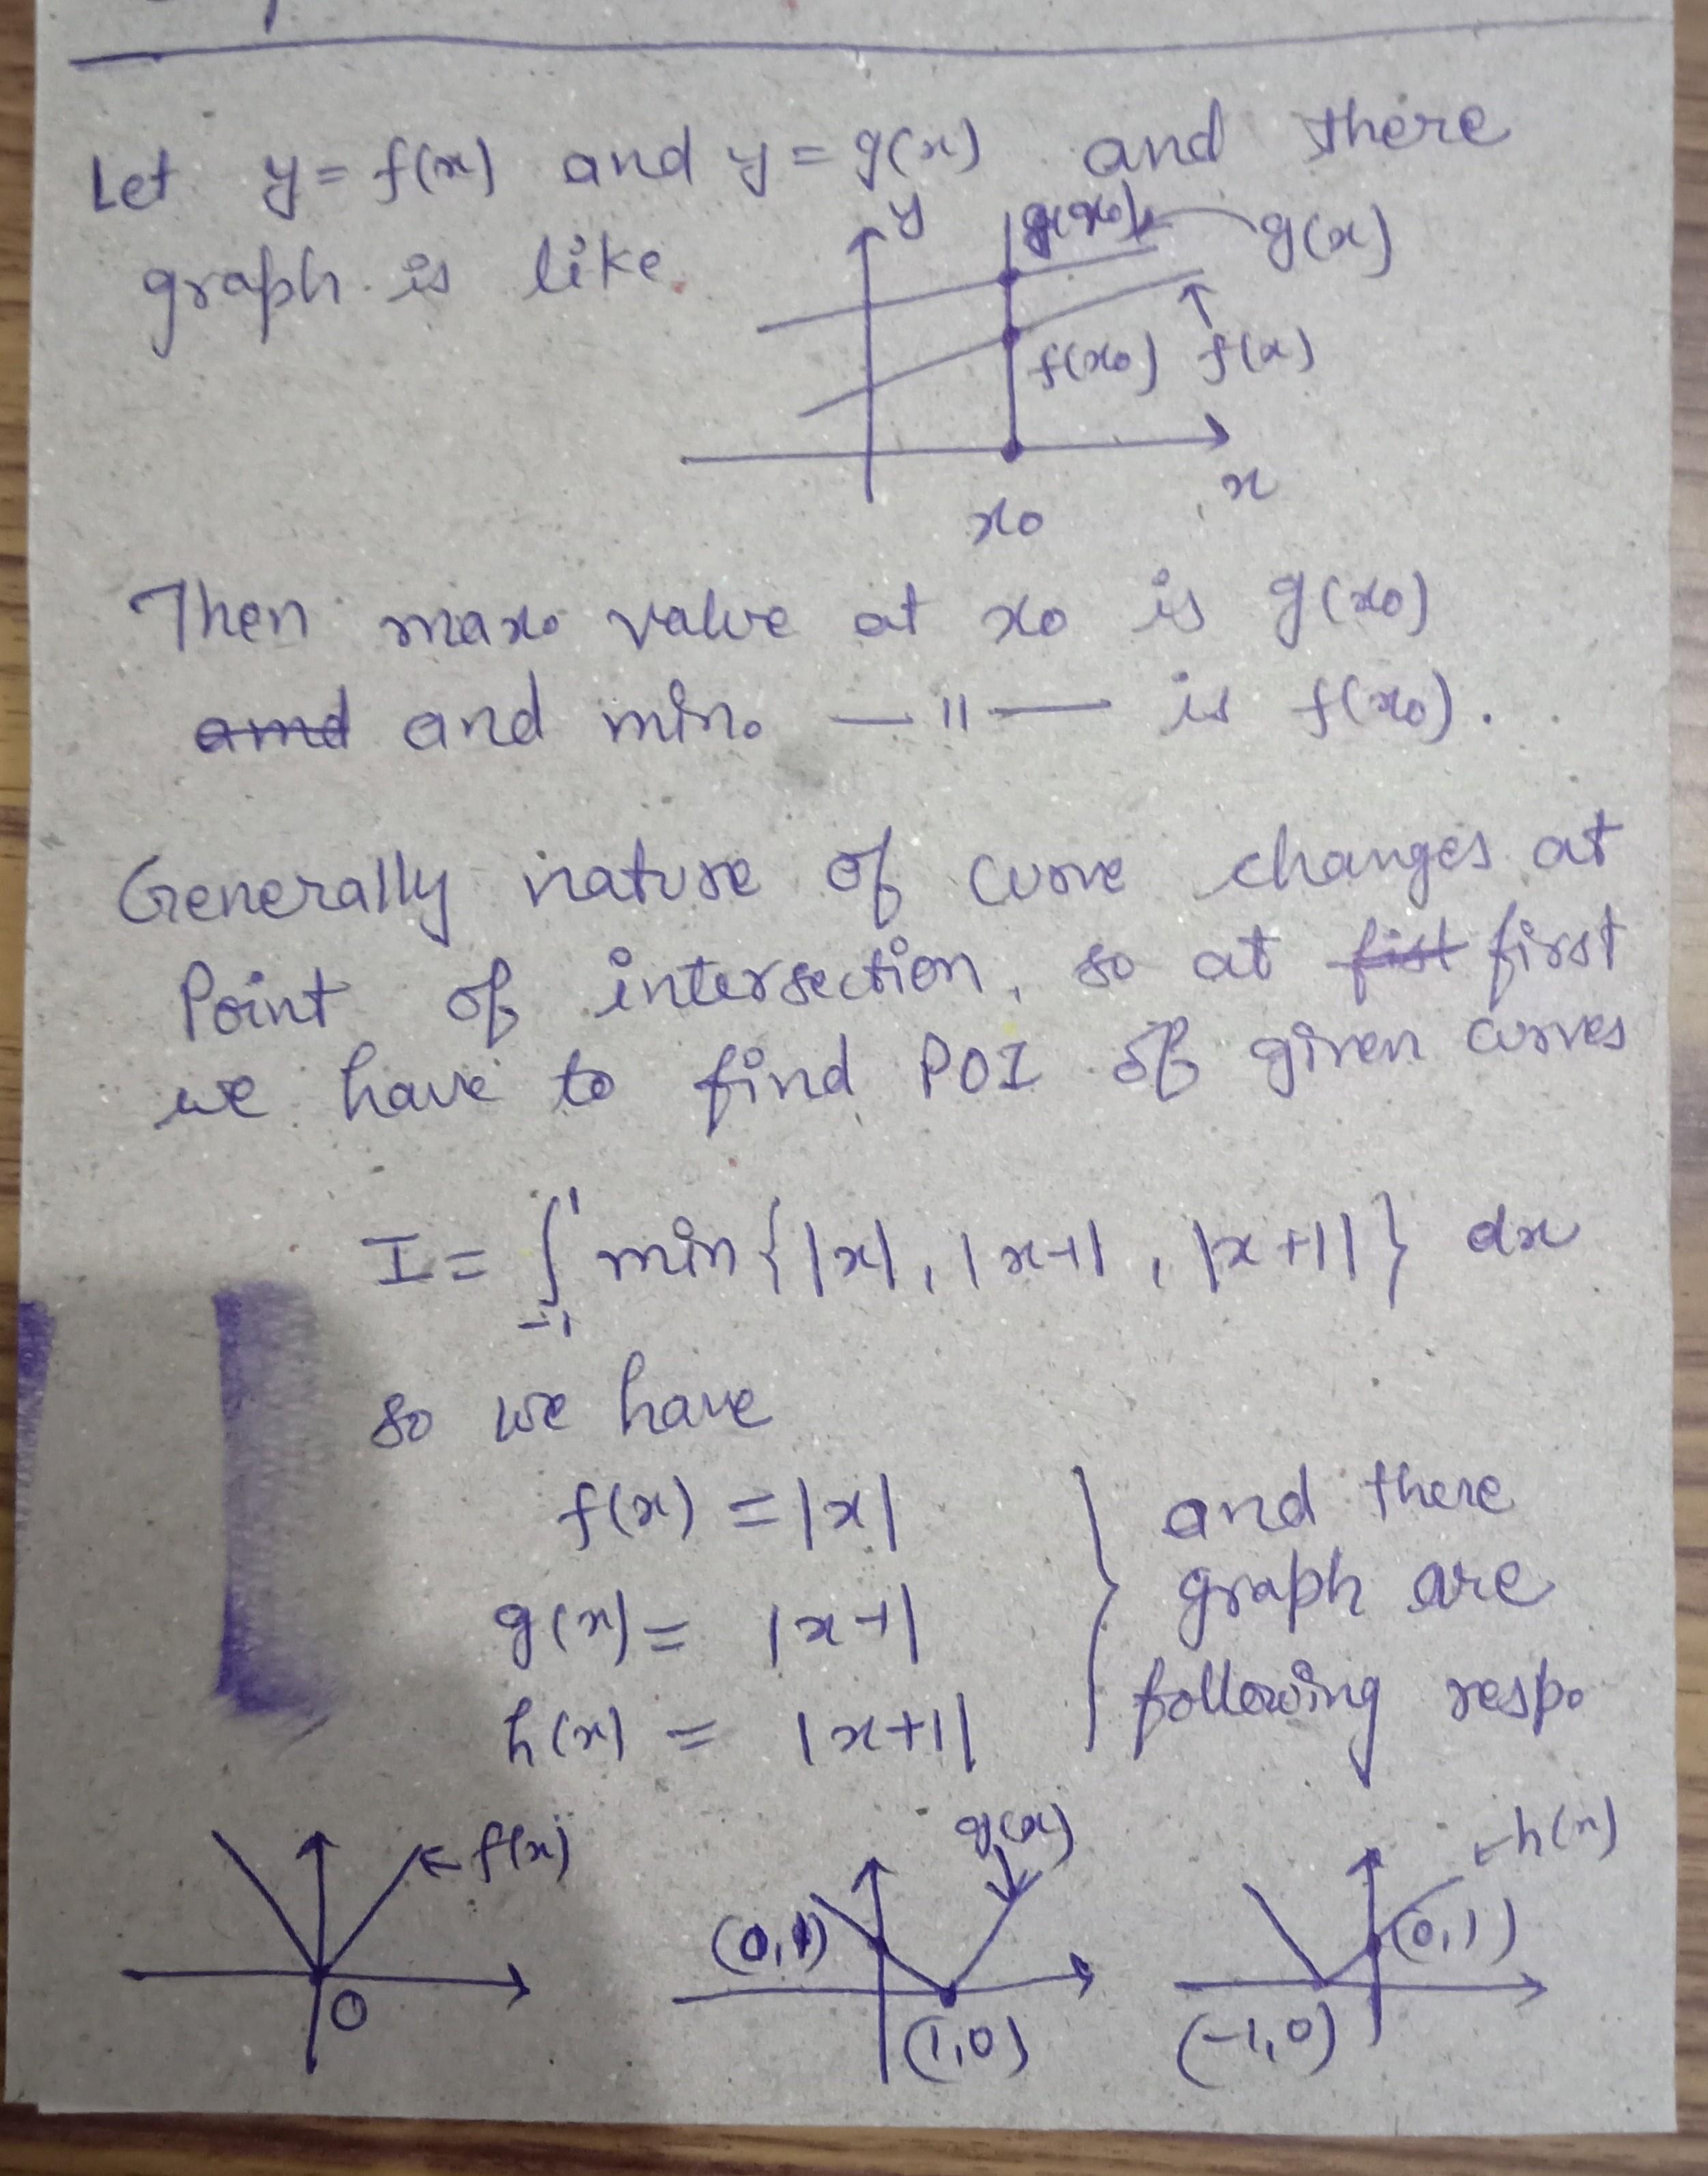 Let y = f(x) and y = g(x) and there
graph is like
y
g(x₀)
g(x)
f(x₀)
f(x)
x
x₀
Then max. value at x₀ is g(x₀)
and and min. —"— is f(x₀).
Generally nature of curve changes at
Point of intersection, so at fist first
we have to find POI of given curves
I = ∫₋₁¹ min{|x|, |x-1|, |x+1|} dx
so we have
f(x) = |x|
g(x) = |x-1|
h(x) = |x+1|
and there
graph are
following resp.
f(x)
O
g(x)
(0,1)
(1,0)
h(x)
(0,1)
(-1,0)